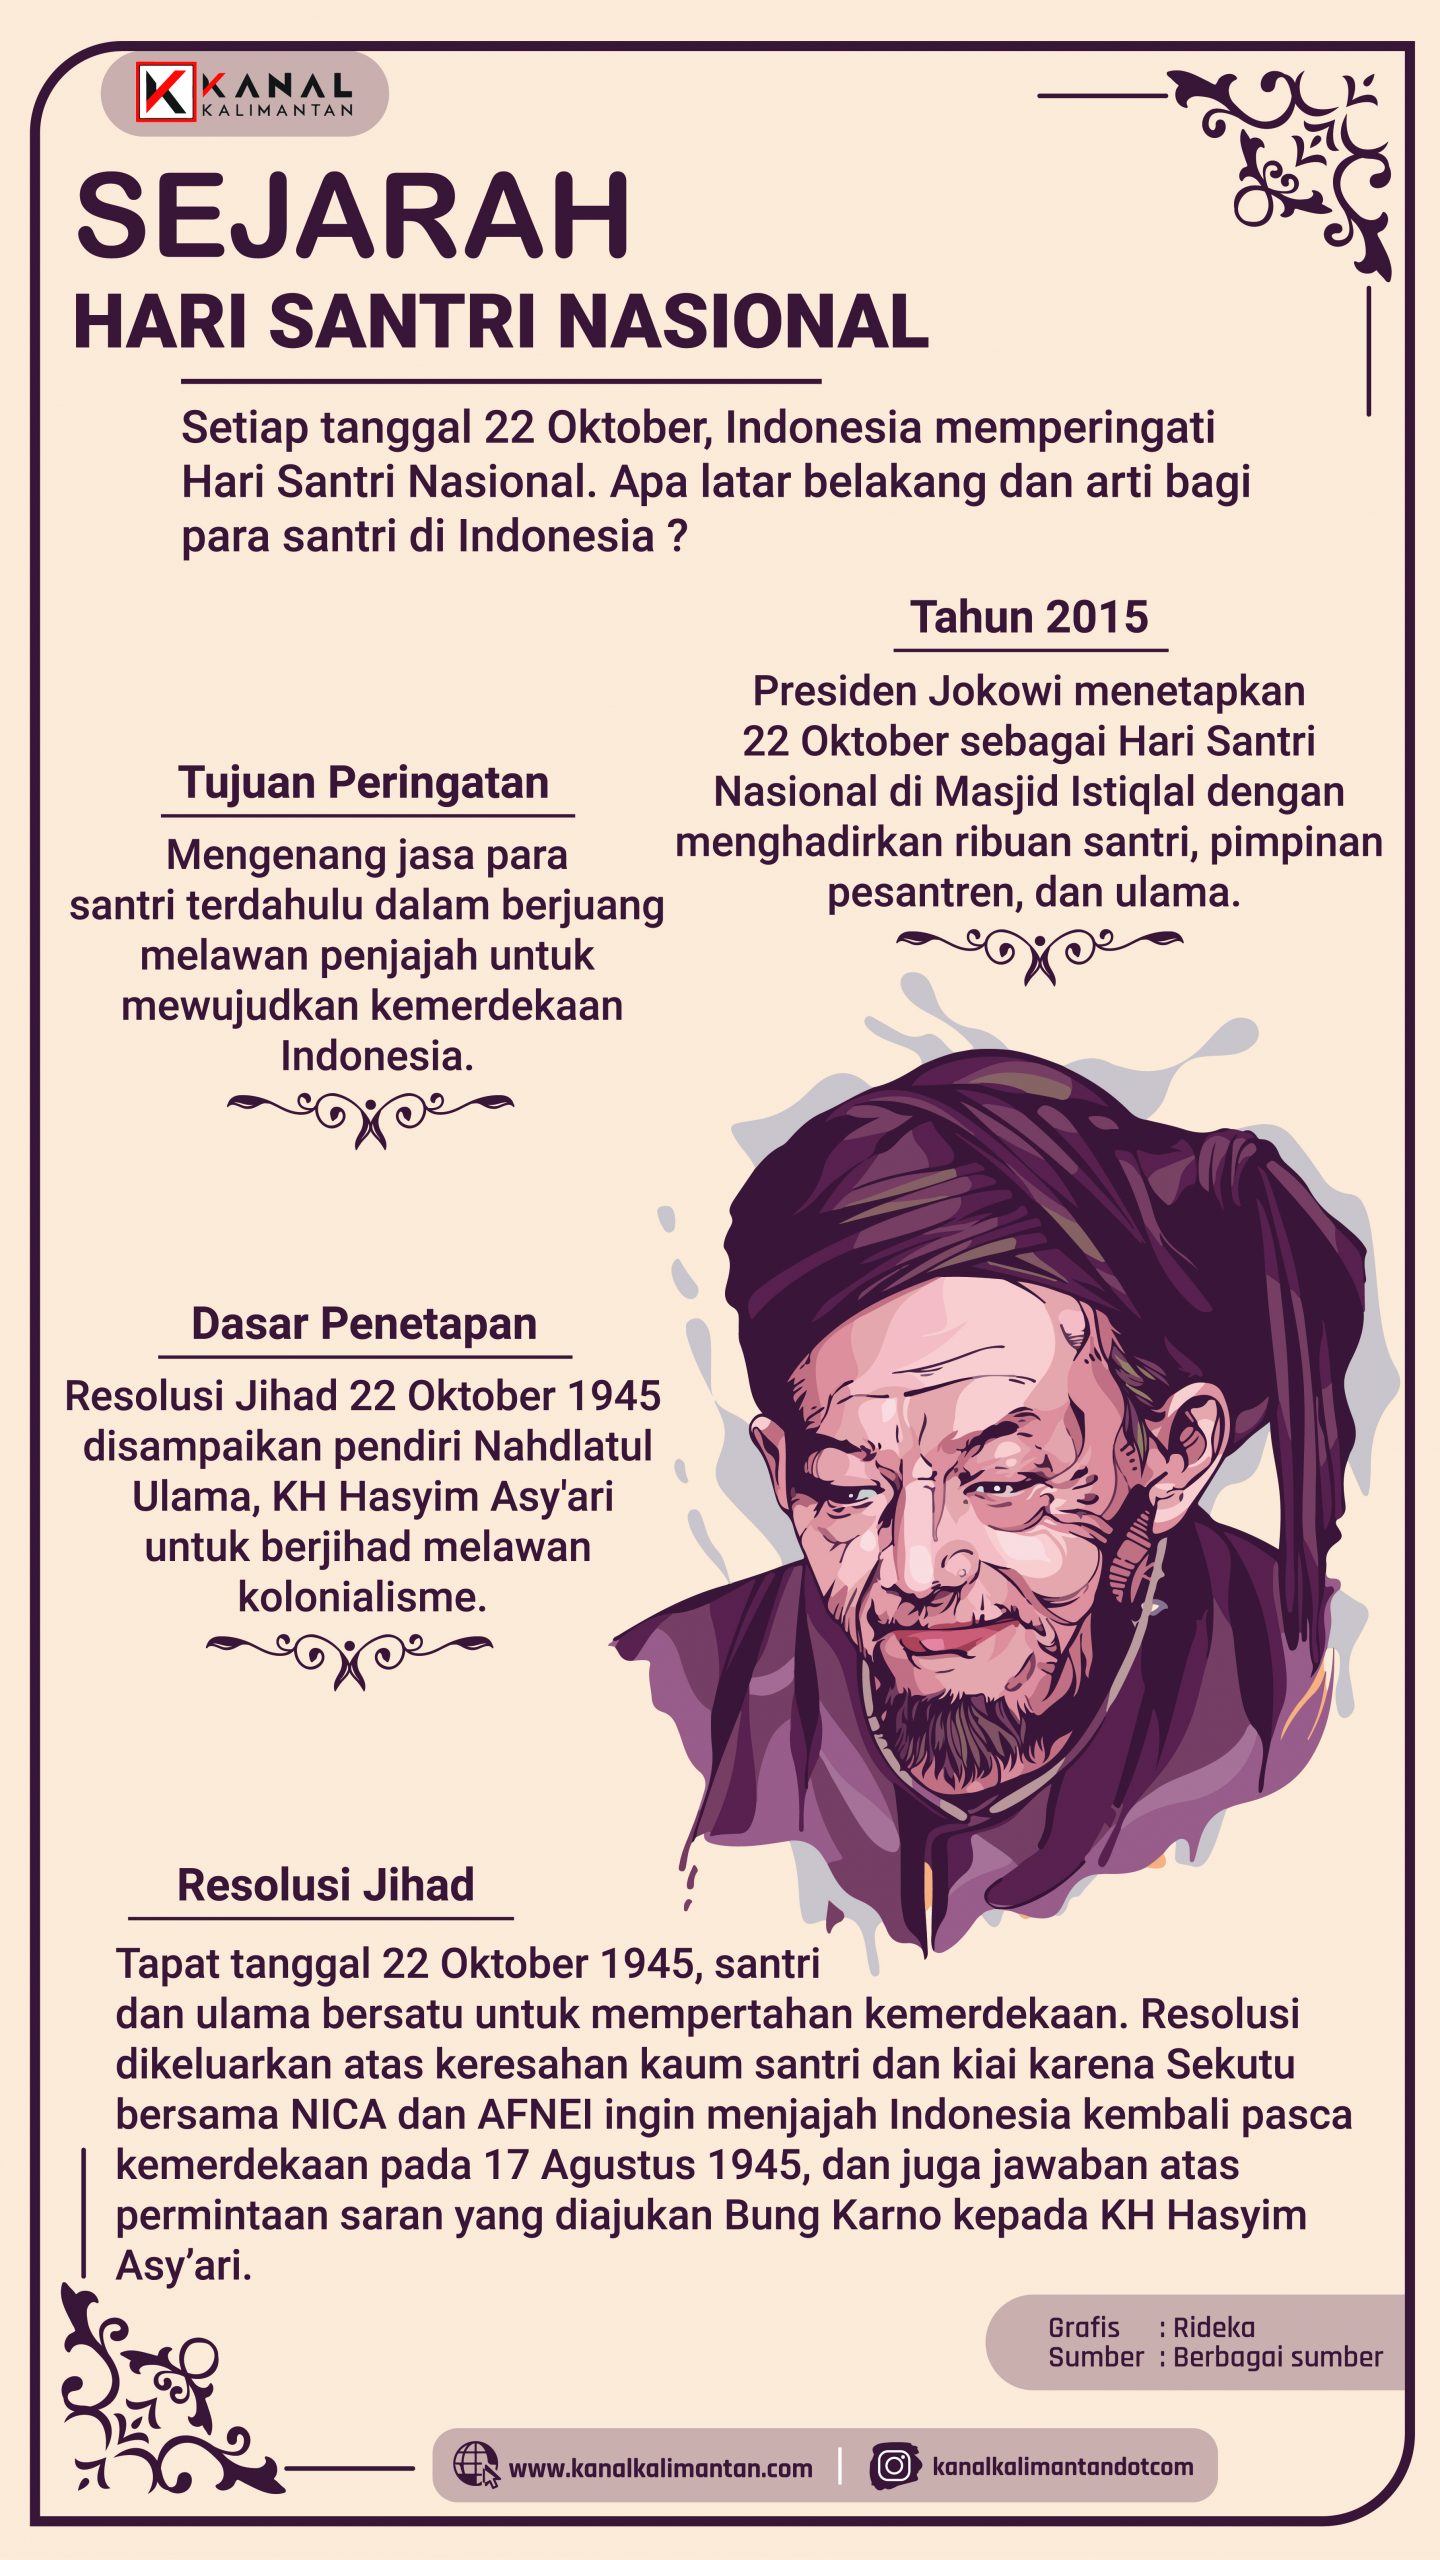 KANAL
KALIMANTAN
SEJARAH
HARI SANTRI NASIONAL
Setiap tanggal 22 Oktober, Indonesia memperingati
Hari Santri Nasional. Apa latar belakang dan arti bagi
para santri di Indonesia ?
Tahun 2015
Presiden Jokowi menetapkan
22 Oktober sebagai Hari Santri
Nasional di Masjid Istiqlal dengan
menghadirkan ribuan santri, pimpinan
pesantren, dan ulama.
Tujuan Peringatan
Mengenang jasa para
santri terdahulu dalam berjuang
melawan penjajah untuk
mewujudkan kemerdekaan
Indonesia.
Dasar Penetapan
Resolusi Jihad 22 Oktober 1945
disampaikan pendiri Nahdlatul
Ulama, KH Hasyim Asy'ari
untuk berjihad melawan
kolonialisme.
Resolusi Jihad
Tapat tanggal 22 Oktober 1945, santri
dan ulama bersatu untuk mempertahan kemerdekaan. Resolusi
dikeluarkan atas keresahan kaum santri dan kiai karena Sekutu
bersama NICA dan AFNEI ingin menjajah Indonesia kembali pasca
kemerdekaan pada 17 Agustus 1945, dan juga jawaban atas
permintaan saran yang diajukan Bung Karno kepada KH Hasyim
Asy’ari.
Grafis : Rideka
Sumber : Berbagai sumber
www.kanalkalimantan.com
kanalkalimantandotcom